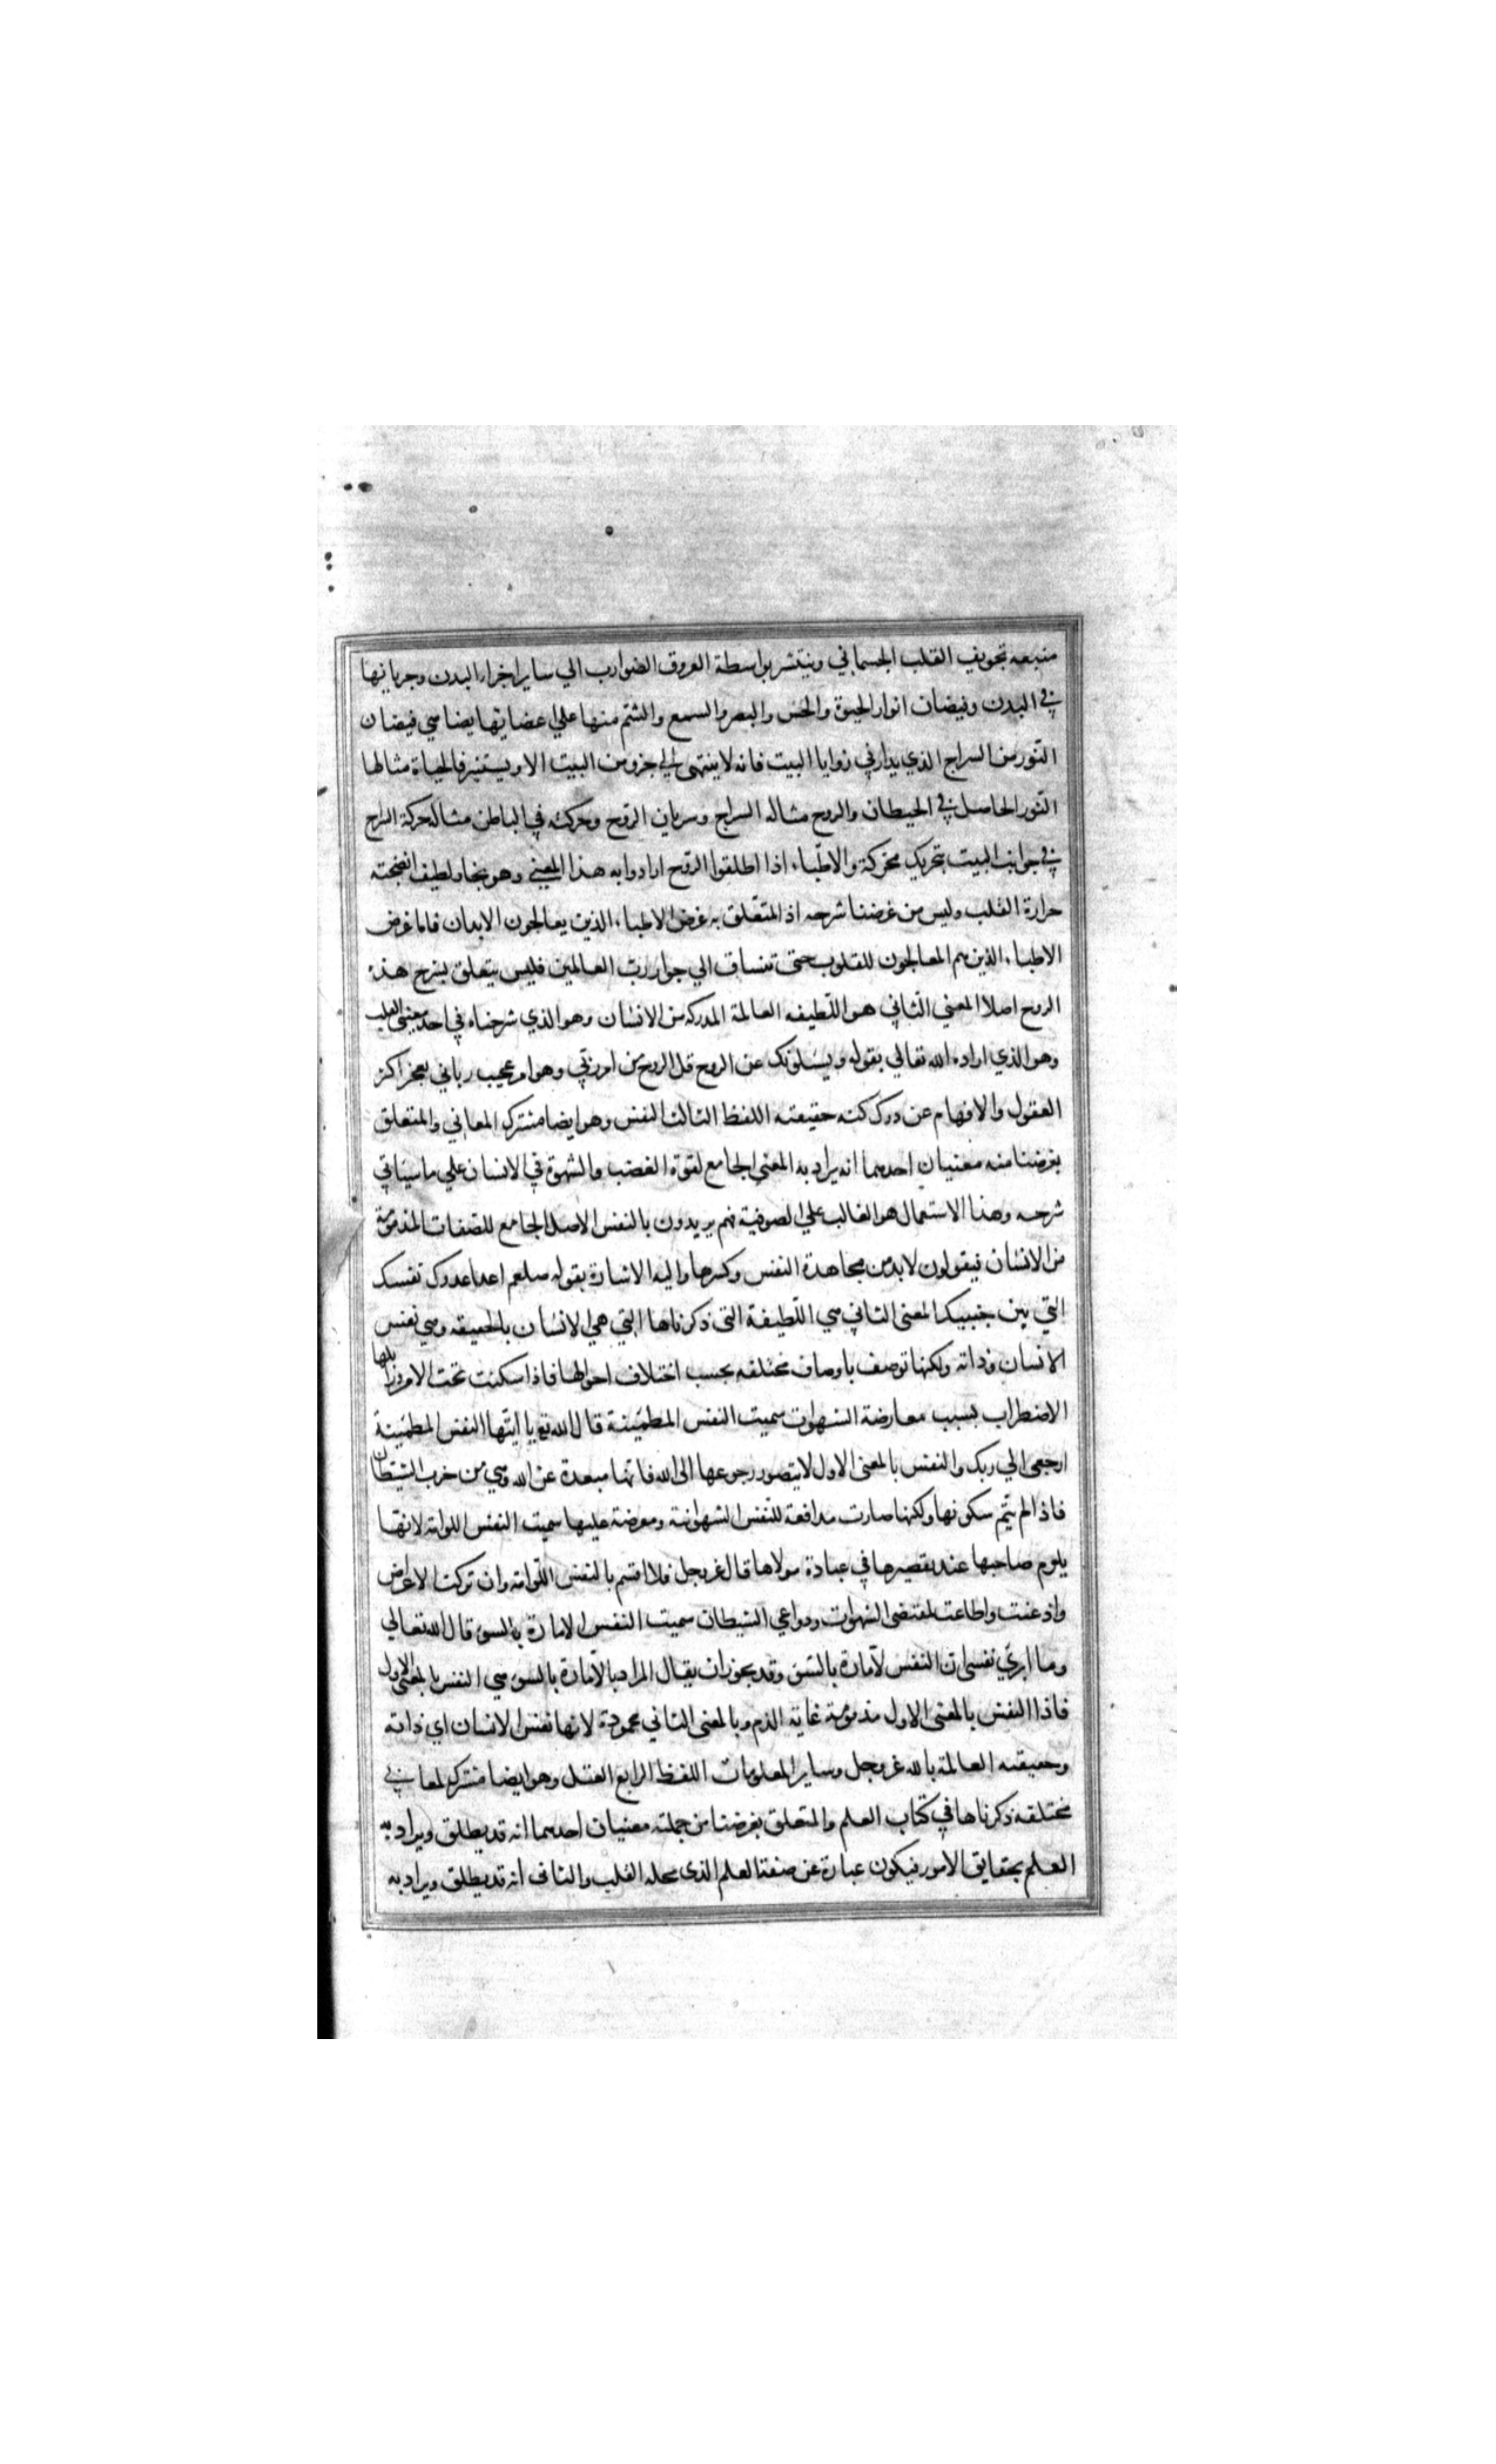 منبعه تجويف القلب الجسماني وينتشر بواسطة العروق الضوارب الي ساير اجزاء البدن وجريانها
في البدن وفيضان انوار الحيوة والحس والبصر والسمع والشم منها علي اعضائها يضاهي فيضان
النور من السراج الذي يدار في زوايا البيت فانه لا ينتهي الي جزو من البيت الا ويستنير فالحياة مثالها
النور الحاصل في الحيطان والروح مثاله السراج وسريان الروح وحركته في الباطن مثاله حركة السراج
في جوانب البيت بتحريك محركه والاطباء اذا اطلقوا الروح ارادوا به هذا المعني وهو بخار لطيف انضجته
حرارة القلب وليس من غرضنا شرحه اذ المتعلق به غرض الاطباء الذين يعالجون الابدان فاما غرض
الاطباء الذين هم المعالجون للقلوب حتى تنساق الي جوار رب العالمين فليس يتعلق بشرح هذه
الروح اصلا المعني الثاني هو اللطيفه العالمة المدركه من الانسان وهو الذي شرحناه في احد معنيي القلب
وهو الذي اراده الله تعالي بقوله ويسئلونك عن الروح قل الروح من امر ربي وهو امر عجيب رباني يعجز اكثر
العقول والافهام عن درك كنه حقيقته اللفظ الثالث النفس وهو ايضا مشترك المعاني والمتعلق
بغرضنا منه معنيان احدهما انه يراد به المعني الجامع لقوة الغضب والشهوة في الانسان علي ما سياتي
شرحه وهذا الاستعمال هو الغالب علي الصوفية فهم يريدون بالنفس الاصل الجامع للصفات المذمومة
من الانسان فيقولون لا بد من مجاهدة النفس وكسرها واليه الاشارة بقوله صلعم اعدا عدوك نفسك
التي بين جنبيك المعنى الثاني هي اللطيفة التى ذكرناها التي هي الانسان بالحقيقه وهي نفس
الانسان وذاته ولكنها توصف باوصاف مختلفه بحسب اختلاف احوالها فاذا سكنت تحت الامر وزايلها
الاضطراب بسبب معارضة الشهوات سميت النفس المطمئينة قال الله تع يا ايتها النفس المطمئينة
ارجعي الي ربك والنفس بالمعنى الاول لا يتصور رجوعها الى الله فانها مبعدة عن الله وهي من حزب الشيطان
فاذا لم يتم سكونها ولكنها صارت مدافعة للنفس الشهوانية ومعرضة عليها سميت النفس اللوامة لانها
يلوم صاحبها عند تقصيرها في عبادة مولاها قال عز وجل فلا اقسم بالنفس اللوامة وان تركت الاعراض
واذعنت واطاعت لمقتضى الشهوات ودواعي الشيطان سميت النفس الامارة بالسوء قال الله تعالي
وما ابرئ نفسي ان النفس لامارة بالسوء وقد يجوز ان يقال المراد بالامارة بالسوء هي النفس بالمعنى الاول
فاذا النفس بالمعنى الاول مذمومة غاية الذم وبالمعنى الثاني محمودة لانها نفس الانسان اي ذاته
وحقيقته العالمة بالله عز وجل وساير المعلومات اللفظ الرابع العقل وهو ايضا مشترك لمعاني
مختلفه ذكرناها في كتاب العلم والمتعلق بغرضنا من جملته معنيان احدهما انه قد يطلق ويراد به
العلم بحقايق الامور فيكون عبارة عن صفة العلم الذى محله القلب والثاني انه قد يطلق ويراد به